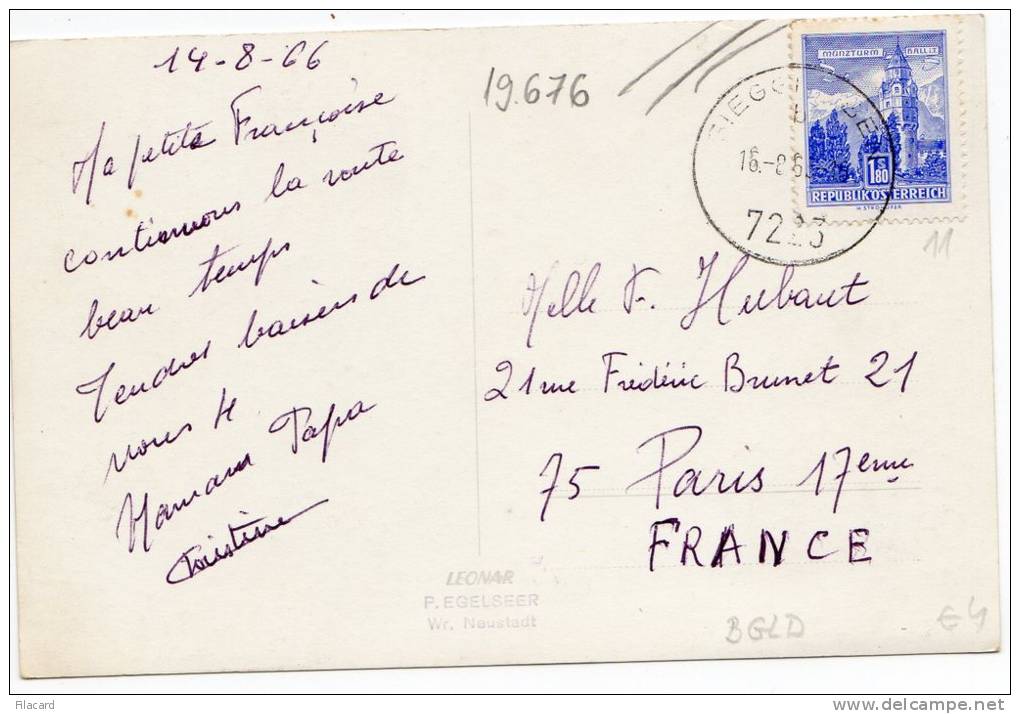 14-8-66
Ma petite Françoise
continuons la route
beau temps
Tendres baisers de
nous 4
Maman Papa
Christine
19.676
MÜNZTURM HALL I.T.
1.80
REPUBLIK ÖSTERREICH
16.-8.6
7223
11
Melle F. Hubaut
21 rue Frédéric Brunet 21
75 Paris 17eme
FRANCE
LEONAR
P. EGELSEER
Wr. Neustadt
BGLD
€4
Filacard
www.delcampe.net